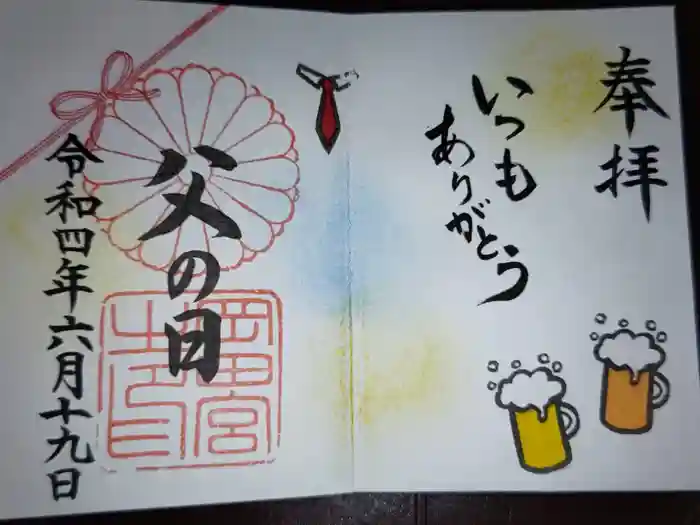 奉拝
いつも
ありがとう
父の日
岡田宮
令和四年六月十九日